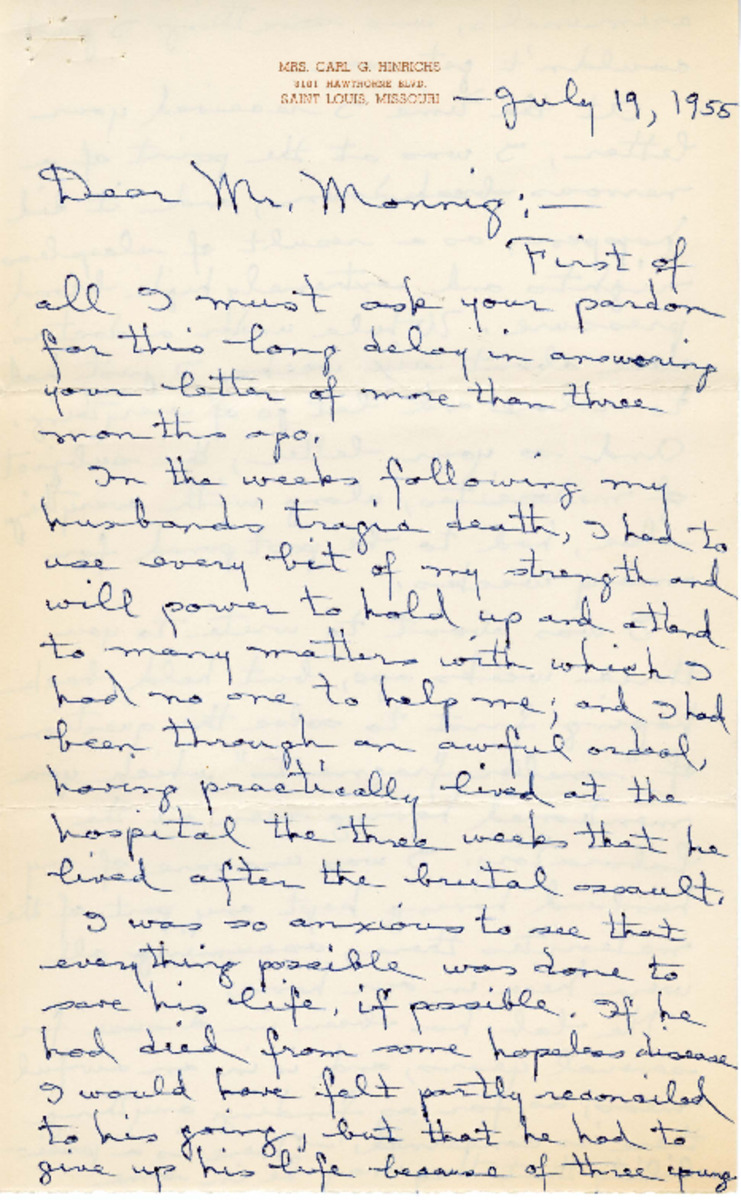 MRS. CARL G. HINRICHS
3101 HAWTHORNE BLVD.
SAINT LOUIS, MISSOURI – July 19, 1955
Dear Mr. Monnig:—
First of
all I must ask your pardon
for this long delay in answering
your letter of more than three
months ago.
In the weeks following my
husbands' tragic death, I had to
use every bit of my strength and
will power to hold up and attend
to many matters with which I
had no one to help me; and I had
been through an awful ordeal,
having practically lived at the
hospital the three weeks that he
lived after the brutal assault.
I was so anxious to see that
everything possible was done to
save his life, if possible. If he
had died from some hopeless disease
I would have felt partly reconciled
to his going, but that he had to
give up his life because of three young